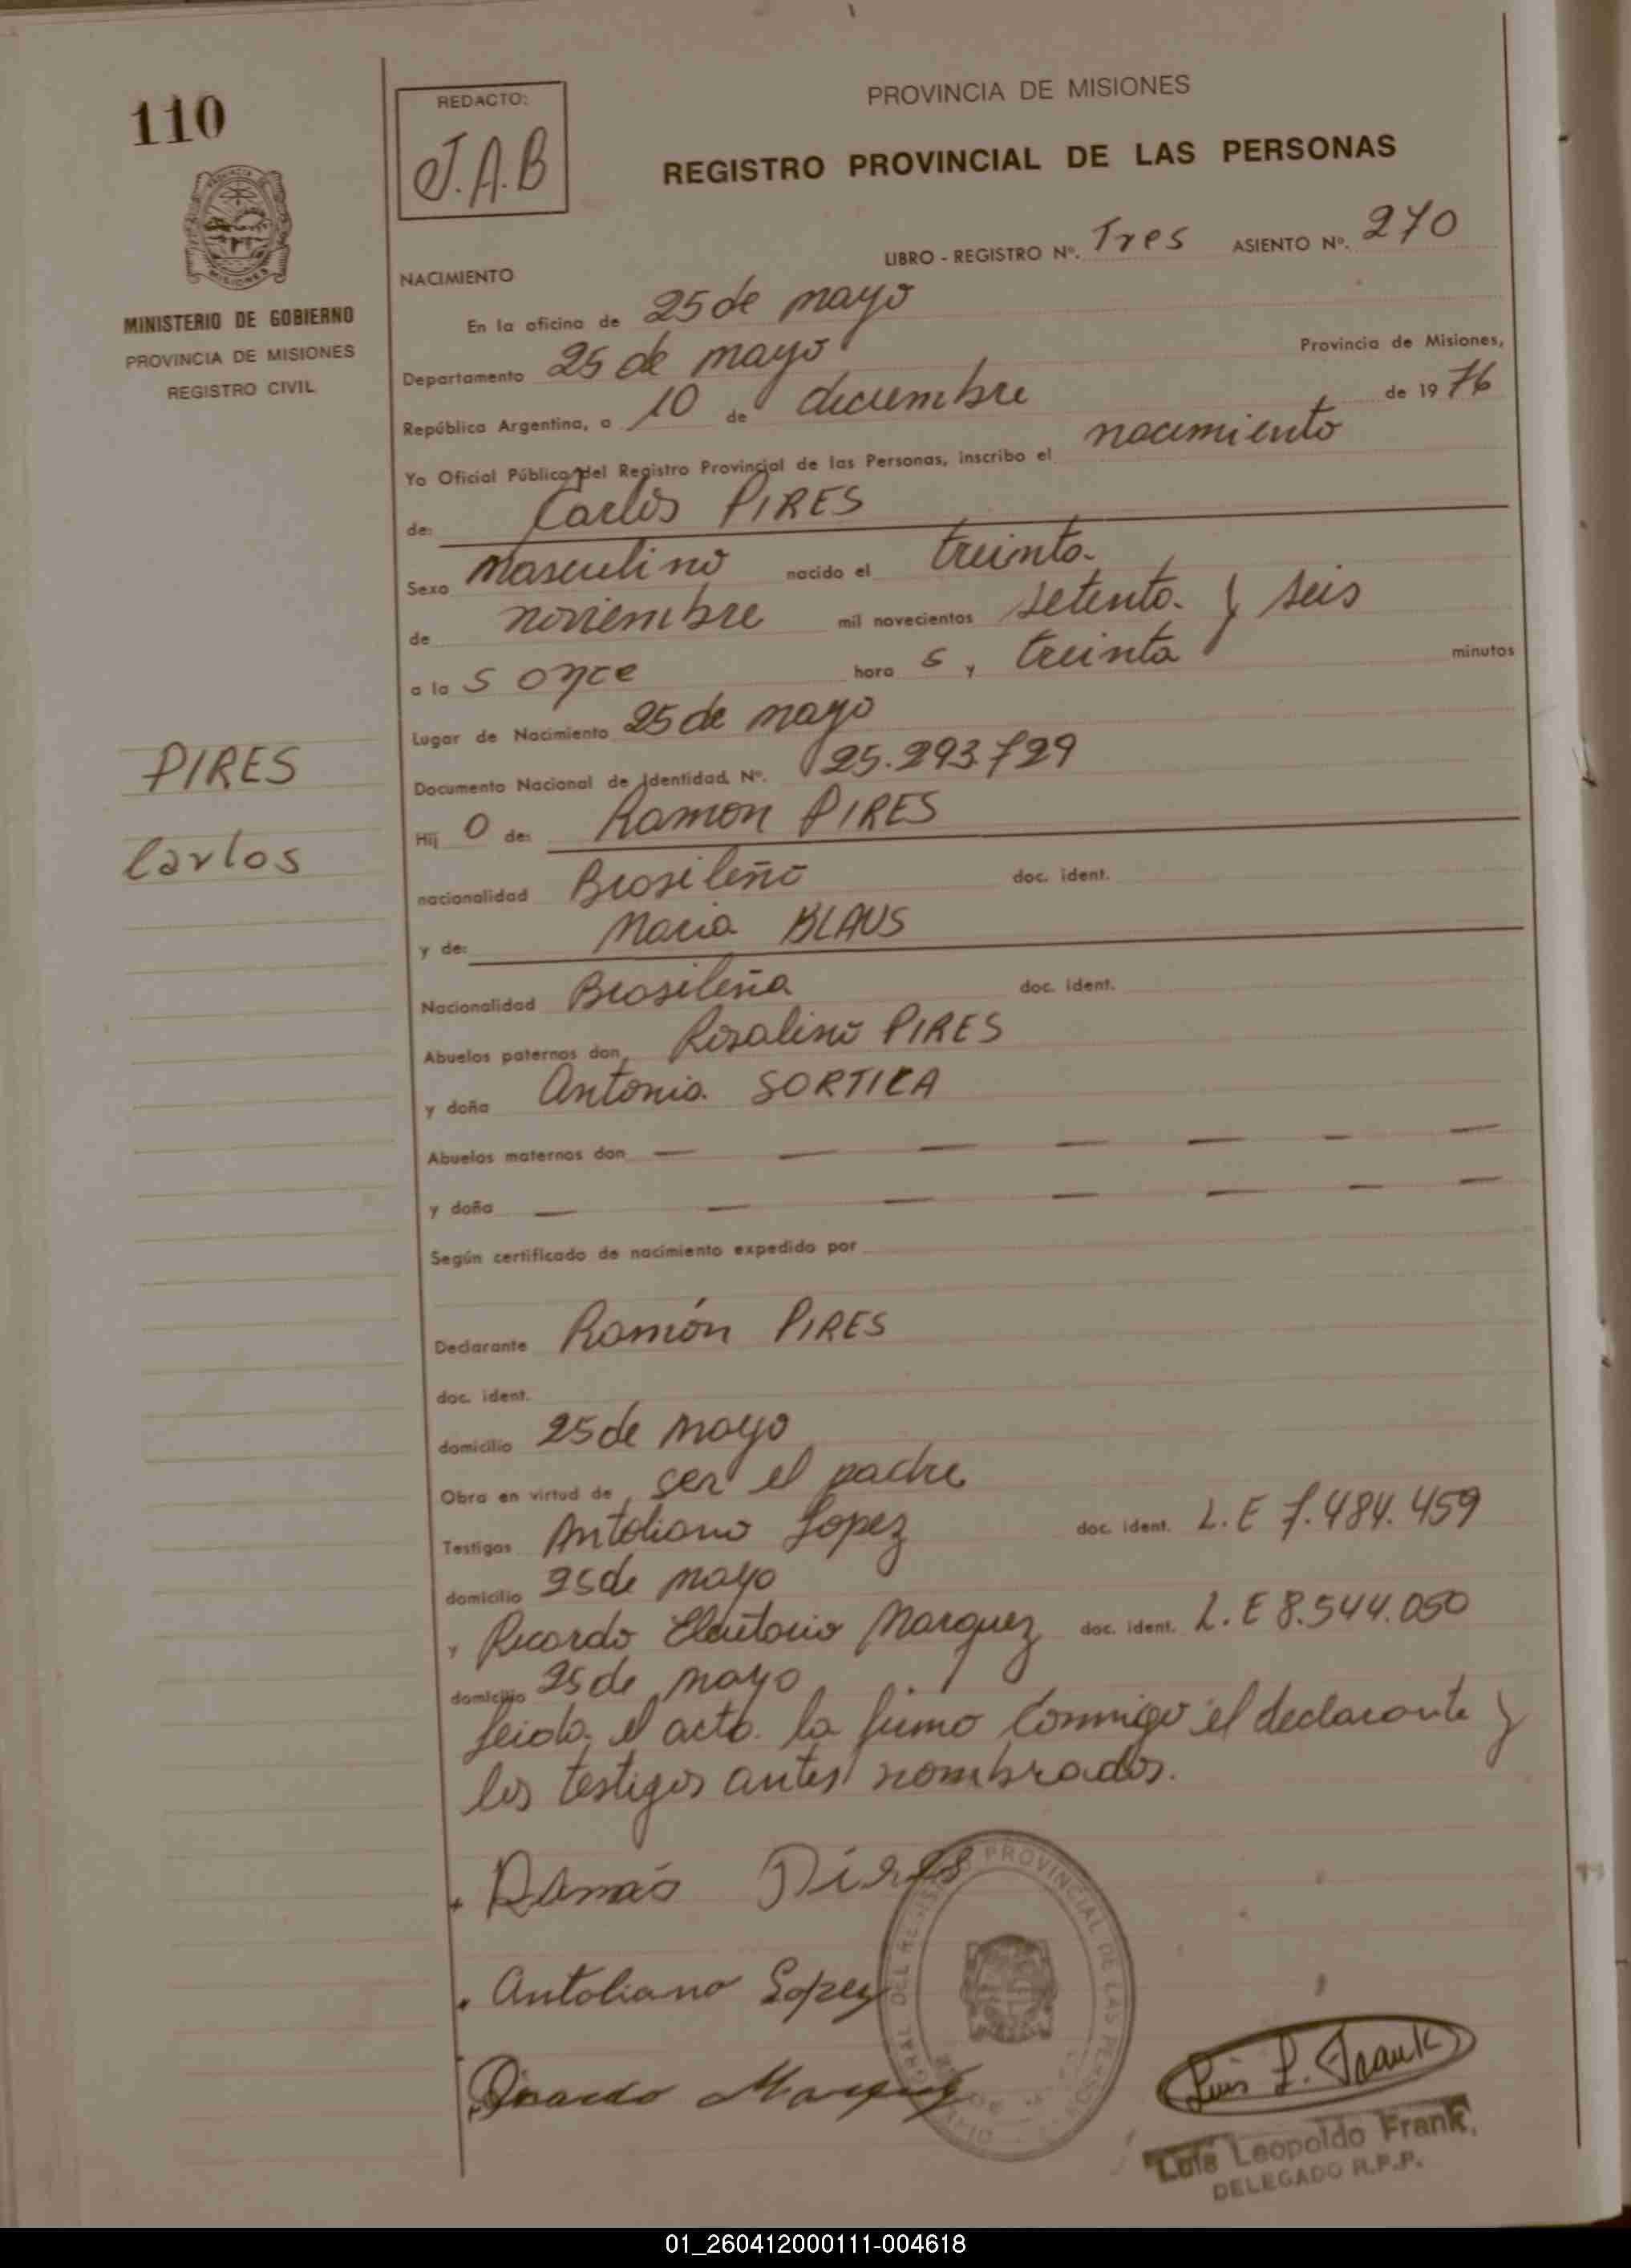 110
REDACTO:
J.A.B
PROVINCIA DE MISIONES
REGISTRO PROVINCIAL DE LAS PERSONAS
LIBRO - REGISTRO Nº. Tres ASIENTO Nº. 270
MINISTERIO DE GOBIERNO
PROVINCIA DE MISIONES
REGISTRO CIVIL
NACIMIENTO
En la oficina de 25 de mayo
Departamento 25 de mayo Provincia de Misiones,
República Argentina, a 10 de diciembre de 1976
Yo Oficial Público del Registro Provincial de las Personas, inscribo el nacimiento
de: Carlos PIRES
Sexo masculino nacido el treinta
de noviembre mil novecientos setenta y seis
a la s once hora s y treinta minutos
Lugar de Nacimiento 25 de mayo
Documento Nacional de Identidad Nº. 25.293.729
PIRES
Carlos
Hij o de: Ramon PIRES
nacionalidad Brasileño doc. ident.
y de: Maria BLAUS
Nacionalidad Brasileña doc. ident.
Abuelos paternos don Rosalino PIRES
y doña Antonia SORTICA
Abuelos maternos don — — — — — —
y doña — — — — — — —
Según certificado de nacimiento expedido por
Declarante Ramón PIRES
doc. ident.
domicilio 25 de mayo
Obra en virtud de ser el padre
Testigos Antoliano Lopez doc. ident. L.E 7.484.459
domicilio 25 de mayo
y Ricardo Eleutorio Marquez doc. ident. L.E 8.544.050
domicilio 25 de mayo
leida el acta la firma conmigo el declarante y
los testigos antes nombrados.
Ramão Pires
Antoliano Lopez
Marquez
PROVINCIAL DE LAS
Luis L. Frank
Luis Leopoldo Frank
DELEGADO R.P.P.
01_260412000111-004618